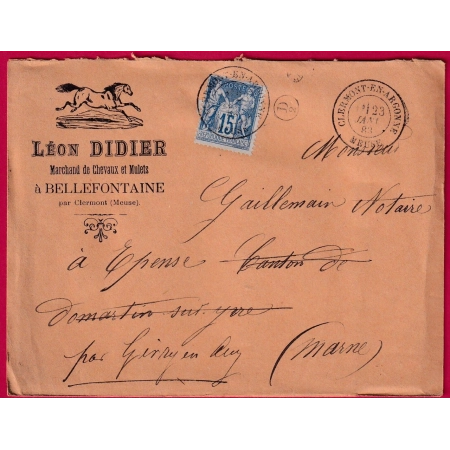 LÉON DIDIER
Marchand de Chevaux et Mulets
à BELLEFONTAINE
par Clermont (Meuse).
15
EN-AR
D
2
CLERMONT-EN-ARGONNE
23
83
MEUSE
Monsieur
Gaillemain Notaire
à Epense Canton de
Domartin sur yere
par Givry en Arg (Marne)